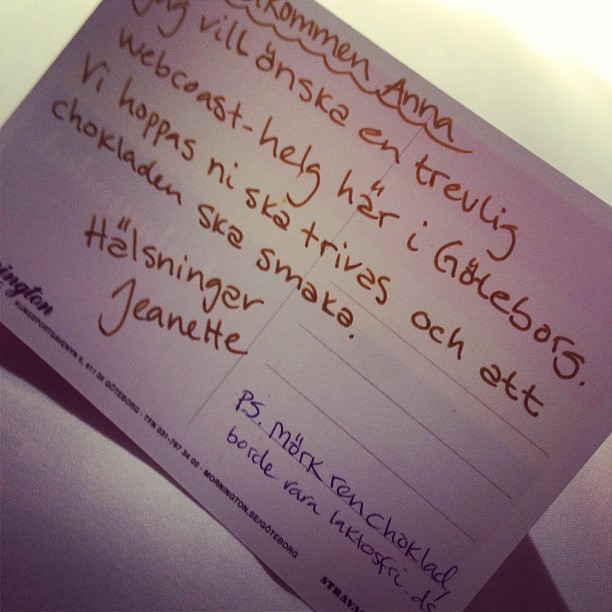 kommen Anna
Jag vill önska en trevlig
webcoast-helg här i Göteborg.
Vi hoppas ni ska trivas och att
chokladen ska smaka.
Hälsningar
Jeanette
PS. Mörk ren choklad,
borde vara laktosfri. ds
ington
KUNGSPORTSAVENYN 6, 411 36 GÖTEBORG - TFN 031-767 34 00 - MORNINGTON.SE/GÖTEBORG
STRAVA